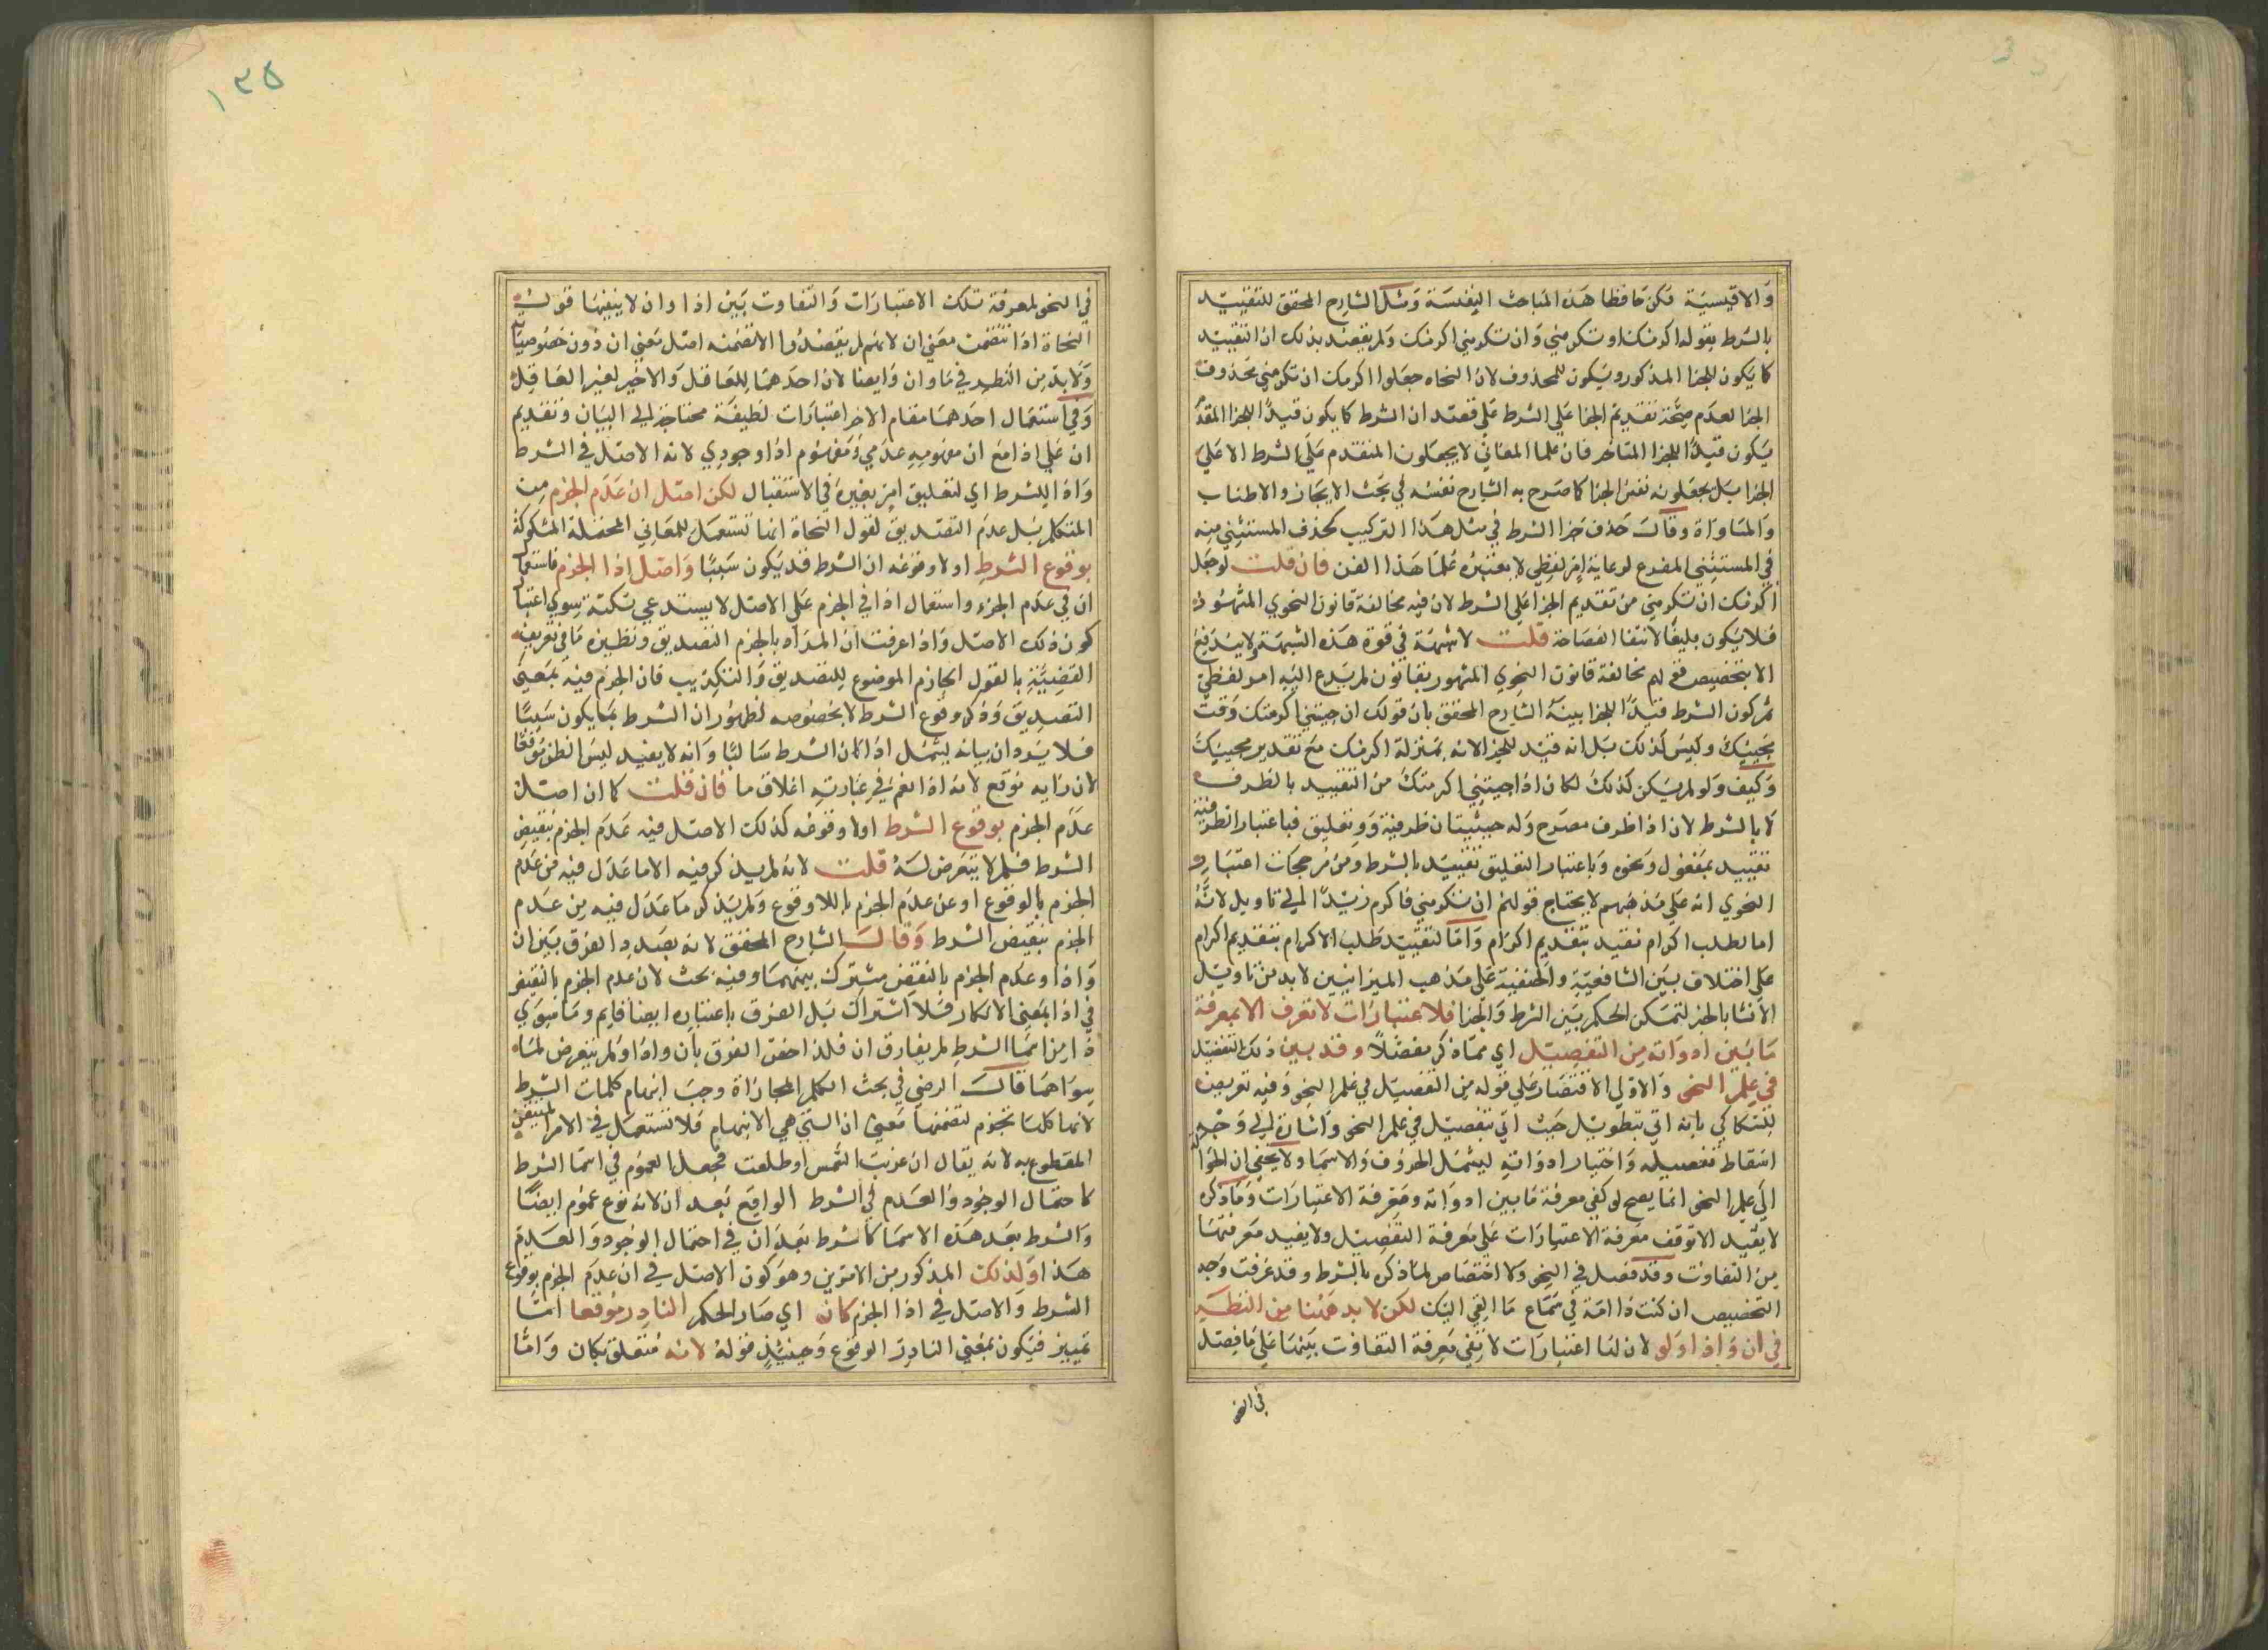 والاقيسية فكن حافظا هذه المباحث النفيسة ومثل الشارح المحقق للتقييد
بالشرط بقوله اكرمتك او تكرمني وان تكرمني اكرمتك ولم يقصد بذلك ان التقييد
كما يكون للجزا المذكور ويكون للمحذوف لان النحاه جعلوا اكرمك ان تكرمني محذوف
الجزا لعدم صحة تقديم الجزا على الشرط على قصد ان الشرط كما يكون قيدًا للجزا المقدم
يكون قيدًا للجزا المتاخر فان علما المعاني لا يجعلون المتقدم على الشرط الا على
الجزا بل يجعلونه نفس الجزا كما صرح به الشارح نفسه في بحث الايجاز والاطناب
والمساواة وقال حذف جزا الشرط في مثل هذا التركيب كحذف المستثني منه
في المستثني المفرغ لرعاية امر لفظي لا يعتبره علما هذا الفن فان قلت لو جعل
اكرمك ان تكرمني من تقديم الجزا على الشرط لان فيه مخالفة قانون النحوي المشهور
فلا يكون بليغًا لانتفا الفصاحة قلت لا شبهة في قوة هذه الشبهة ولا يندفع
الا بتخصيص قولهم مخالفة قانون النحوي المشهور بقانون لم يدع اليه امر لفظي
ثم كون الشرط قيدًا للجزا بينه الشارح المحقق بان قولك ان جيتني اكرمتك وقت
مجيئك وليس كذلك بل انه قيد للجزا لانه بمنزلة اكرمتك مع تقدير مجيئك
وكيف ولو لم يكن كذلك لكان اذا جيتني اكرمتك من التقييد بالظرف
لا بالشرط لان اذا ظرف مصرح وله حيثيتان ظرفية وتعليق فباعتبار الظرفية
تقييد بمفعول ونحوه وباعتبار التعليق تقييد بالشرط ومن مرجحات اعتباره
النحوي انه على مذهبهم لا يحتاج قولهم ان تكرمني فاكرم زيدًا الى تاويل لانه
اما لطلب اكرام تقيد بتقديم اكرام واما لتقييد طلب الاكرام بتقديم اكرام
على اختلاف بين الشافعية والحنفية على مذهب الميزانيين لا بد من تاويل
الانشا بالخبر لتمكن الحكم بين الشرط والجزا فلاعتبارات لا تعرف الا بمعرفة
ما بين ادواته من التفصيل اي مما ذكر مفصلًا وقد بين ذلك التفصيل
في علم النحو والاولى الاقتصار على قوله من التفصيل في علم النحو وفيه تعريض
للسكاكي بانه اتي بتطويل حيث اتي بتفصيل في علم النحو واشارة الى وجه
اسقاط تفصيله واختيار ادواته ليشمل الحروف والاسما ولا يخفى ان الحوالة
الى علم النحو انما يصح لو كفى معرفة ما بين ادواته ومعرفة الاعتبارات وما ذكره
لا يفيد الا توقف معرفة الاعتبارات على معرفة التفصيل ولا يفيد معرفتها
من التفاوت وقد فصل في النحو ولا اختصاص لما ذكره بالشرط وقد عرفت وجه
التخصيص ان كنت ذا امة في سماع ما القي اليك لكن لا بد ههنا من النظر
في ان واذا ولو لان لنا اعتبارات لا تفي معرفة التفاوت بينها على ما فصل
في النحو
١٣٥
في النحو لمعرفة تلك الاعتبارات والتفاوت بين اذا وان لا ينفيها قول
النحاة اذا تضمنت معنى ان لانهم لم يقصدوا الا تضمنه اصل معنى ان دون خصوصياته
ولا بد من النظر في ما وان وايضا لان احدهما للعاقل والاخر لغير العاقل
وفي استعمال احدهما مقام الاخر اعتبارات لطيفة محتاجة الى البيان وتقديم
ان على اذا مع ان مفهومه عدمي ومفهوم اذا وجودي لانه الاصل في الشرط
واذا للشرط اي لتعليق امر بغيره في الاستقبال لكن اصل ان عدم الجزم من
المتكلم بل عدم التصديق لقول النحاة انها تستعمل للمعاني المحتملة المشكوكة
بوقوع الشرط اولا وقوعه ان الشرط قد يكون سببًا واصل اذا الجزم فاستعمال
ان في عدم الجزم واستعمال اذا في الجزم على الاصل لا يستدعي نكتة سوى اعتبار
كون ذلك الاصل واذا عرفت ان المراد بالجزم التصديق ونظيره ما في تعريف
القضية بالقول الجازم الموضوع للتصديق والتكذيب فان الجزم فيه بمعنى
التصديق وذكر وقوع الشرط لا بخصوصه لظهور ان الشرط بما يكون سببًا
فلا يرد ان بيانه يشمل اذا كان الشرط سالبًا وانه لا يفيد ليس الظن موقعًا
لان رايه موقع لانه اذا نعم في عبارته اغلاق ما فان قلت كما ان اصل ان
عدم الجزم بوقوع الشرط اولا وقوعه كذلك الاصل فيه عدم الجزم بنقيض
الشرط فلم لا يتعرض له قلت لانه لم يذكر فيه الا ما عدل فيه من عدم
الجزم بالوقوع او عن عدم الجزم باللاوقوع ولم يذكر ما عدل فيه من عدم
الجزم بنقيض الشرط وقال الشارح المحقق لانه بصدد الفرق بين ان
واذا وعدم الجزم بالنقيض مشترك بينهما وفيه بحث لان عدم الجزم بالنقيض
في اذا بمعنى الانكار فلا اشتراك بل الفرق باعتباره ايضا قايم وما سوى
ذا من اسما الشرط لم يفارق ان فلذا حفق الفرق بان واذا ولم يتعرض لما
سواهما قال الرضي في بحث الكلم المجازاة وجب ابهام كلمات الشرط
لانها كلها تجزم لتضمنها معنى ان التي هي الابهام فلا تستعمل في الامر المتيقن
المقطوع به لانه يقال ان غربت الشمس او طلعت فجعل العموم في اسما الشرط
كاحتمال الوجود والعدم في الشرط الواقع بعد ان لانه نوع عموم ايضًا
والشرط بعد هذه الاسما كالشرط بعد ان في احتمال الوجود والعدم
هذا ولذلك المذكور من الامرين وهو كون الاصل في ان عدم الجزم بوقوع
الشرط والاصل في اذا الجزم كان اي صار الحكم النادر موقعا امّا
تمييز فيكون بمعنى النادر الوقوع وحينئذ قوله لانه متعلق بكان وامّا